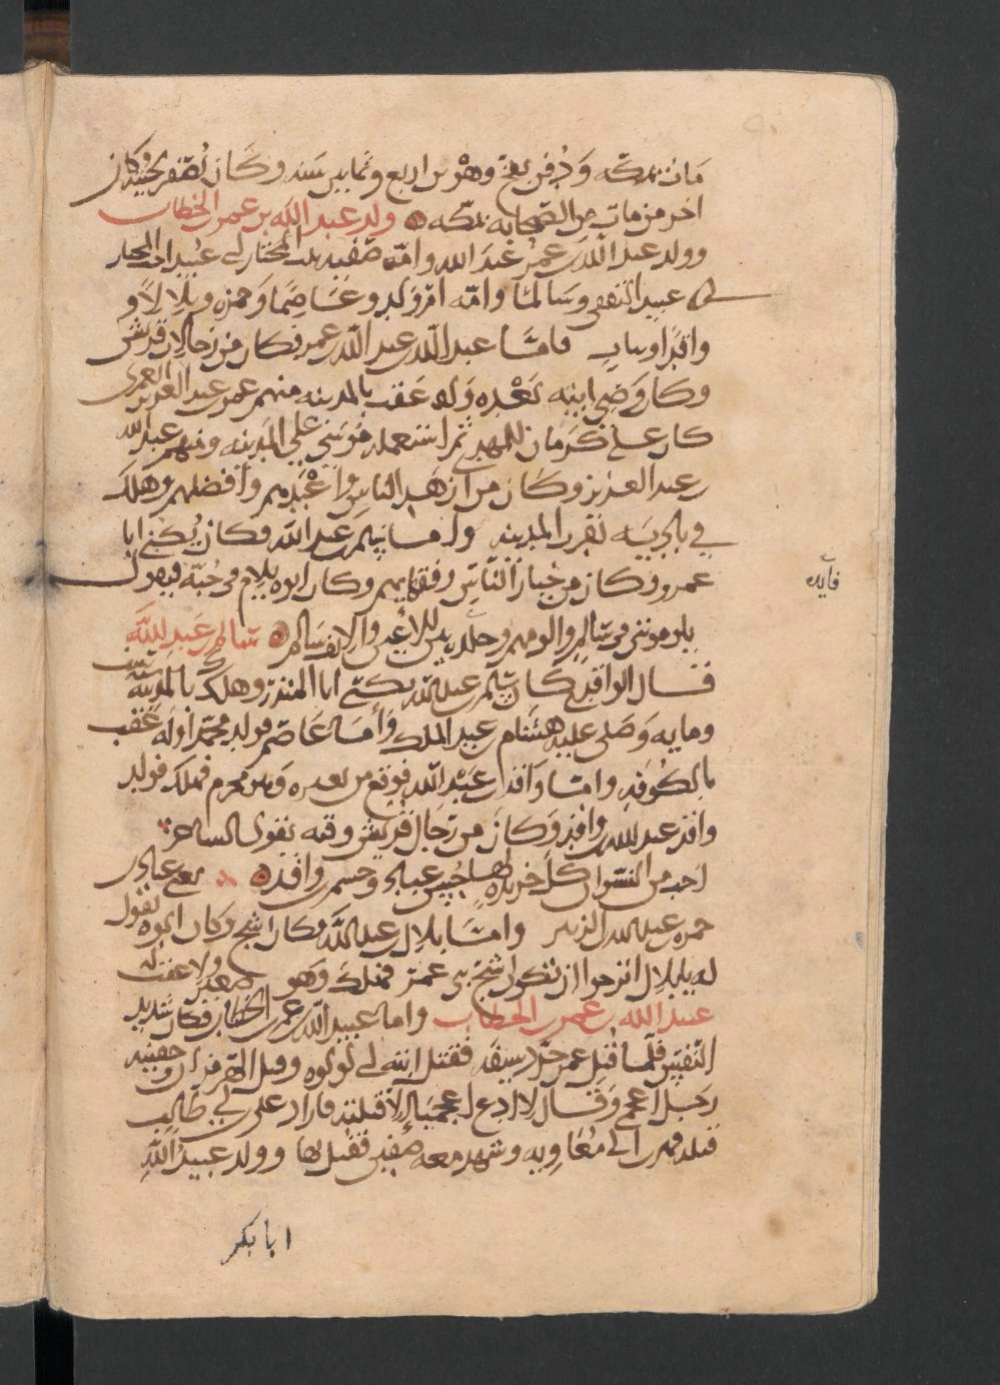 مات بمكه ودفن بفخ وهو بن اربع وثمانين سنه وكان يصفر لحيته وكان
اخر من مات من الصحابه بمكه ولد عبد الله بن عمر بن الخطاب
وولد عبد الله بن عمر عبد الله وامه صفيه بنت المختار ابي عبيد اخت المختار
بن عبيد الثقفي وسالما وامه ام ولد وعاصما وحمزه وبلالا و
واقدا وبنات فاما عبد الله بن عبد الله بن عمر فكان من رجال قريش
وكان وصي ابيه بعده وله عقب بالمدينه منهم عمر بن عبد العزيز العمري
كان على كرمان للمهدي ثم استعمله موسى علي المدينه ومنهم عبد الله
بن عبد العزيز وكان من ازهد الناس واعبدهم وافضلهم وهلك
في باديه بقرب المدينه واما سالم بن عبد الله فكان يكنى ابا
عمرو وكان من خيار الناس وفقهايهم وكان ابوه يلام في حبه فيقول
يلومونني في سالم والومهم وجلده بين العين والانف سالم سالم بن عبد الله
قال الواقدي كان سالم بن عبد الله يكنى ابا المنذر وهلك بالمدينه سنه ست
ومايه وصلى عليه هشام بن عبد الملك واما عاصم فولد محمدا وله عقب
بالكوفه واما واقد بن عبد الله فوقع من بعيره وهو محرم فهلك فولد
واقد عبد الله بن واقد وكان من رجال قريش وفيه يقول الشاعر
احب من النسوان كل خريده لها حسن عباد وجسم بن واقد يعني عباد بن
حمزه بن عبد الله بن الزبير واما بلال بن عبد الله فكان اشج وكان ابوه يقول
له يابلال اني لارجوا ان تكون اشج بني عمر فهلك وهو صغير ولا عقب له
عبيد الله بن عمر بن الخطاب واما عبيد الله بن عمر بن الخطاب فكان شديد
البطش فلما قتل عمر جرد سيفه فقتل ابنه ابي لولوه وقتل الهرمزان وجفينه
رجل اعجمي وقال لا ادع اعجميا الا قتلته فاراد علي بن ابي طالب
قتله فهرب الى معاويه وشهد معه صفين فقتل بها وولد عبيد الله
ابا بكر
فايده